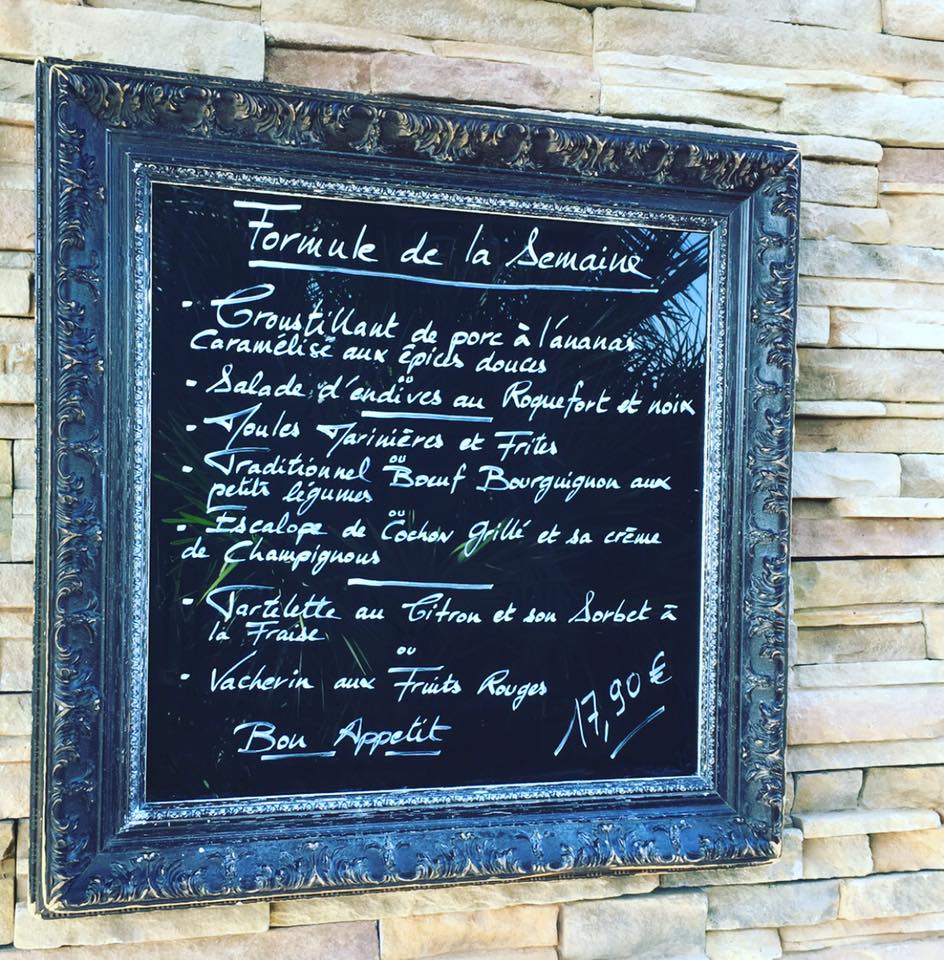 Formule de la Semaine
- Croustillant de porc à l'ananas
Caramélisé aux épices douces
ou
- Salade d'endives au Roquefort et noix
- Moules Marinières et Frites
ou
- Traditionnel Bœuf Bourguignon aux
petits légumes
ou
- Escalope de Cochon grillé et sa crème
de Champignons
- Tartelette au Citron et son Sorbet à
la Fraise
ou
- Vacherin aux Fruits Rouges
17,90 €
Bon Appetit